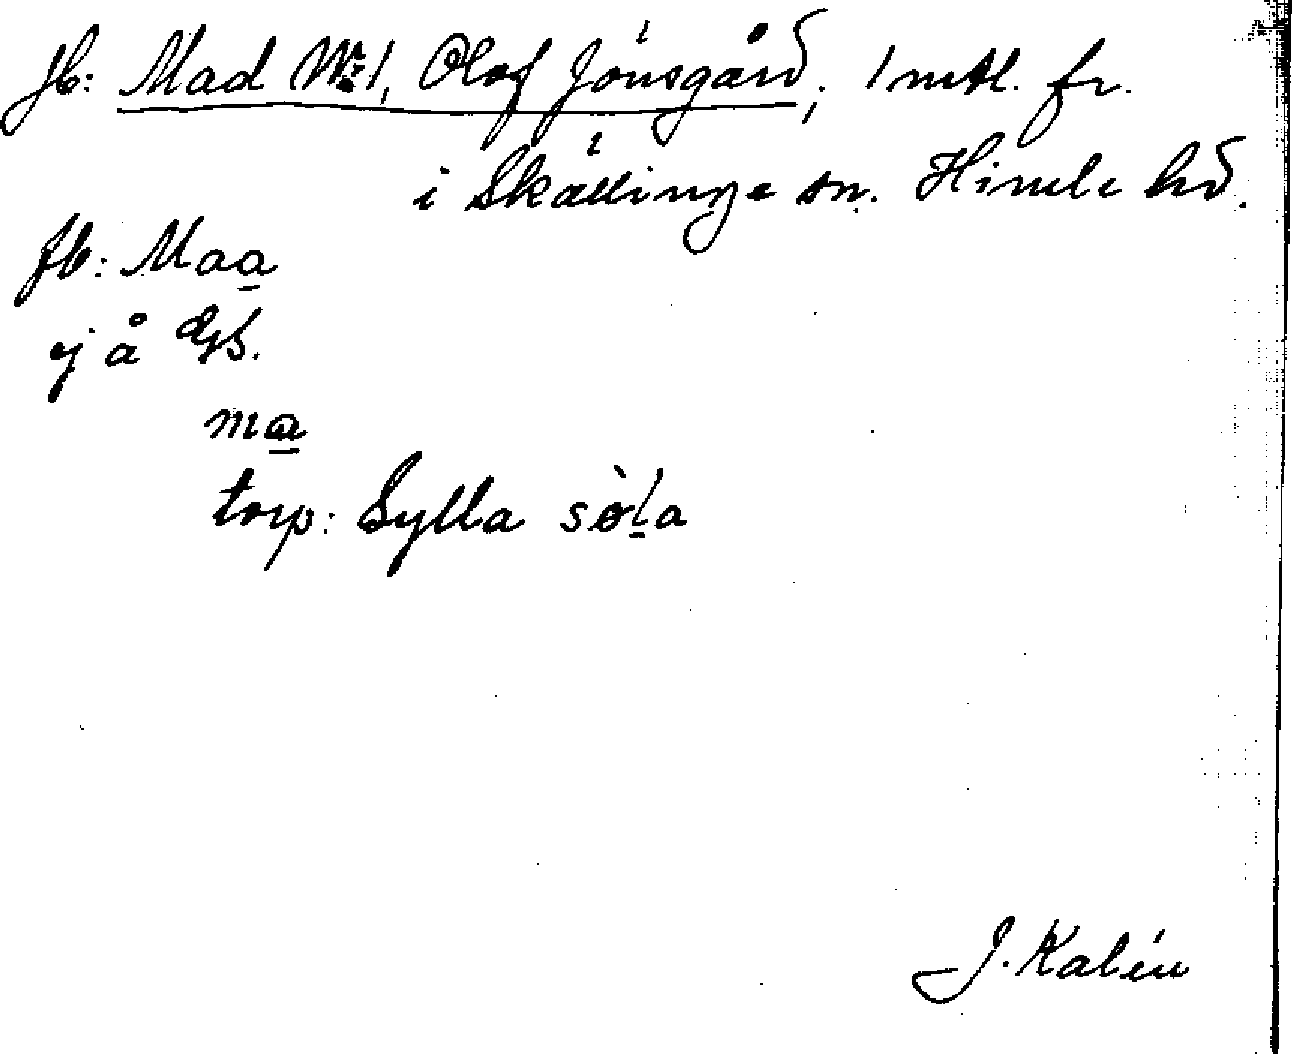 Jb: Mad No 1, Olof Jönsgård; 1 mtl. fr.
i Skällinge sn. Himle hd.
Jb: Maa
ej å Gs.
ma
torp: Sylla söla
J. Kalén